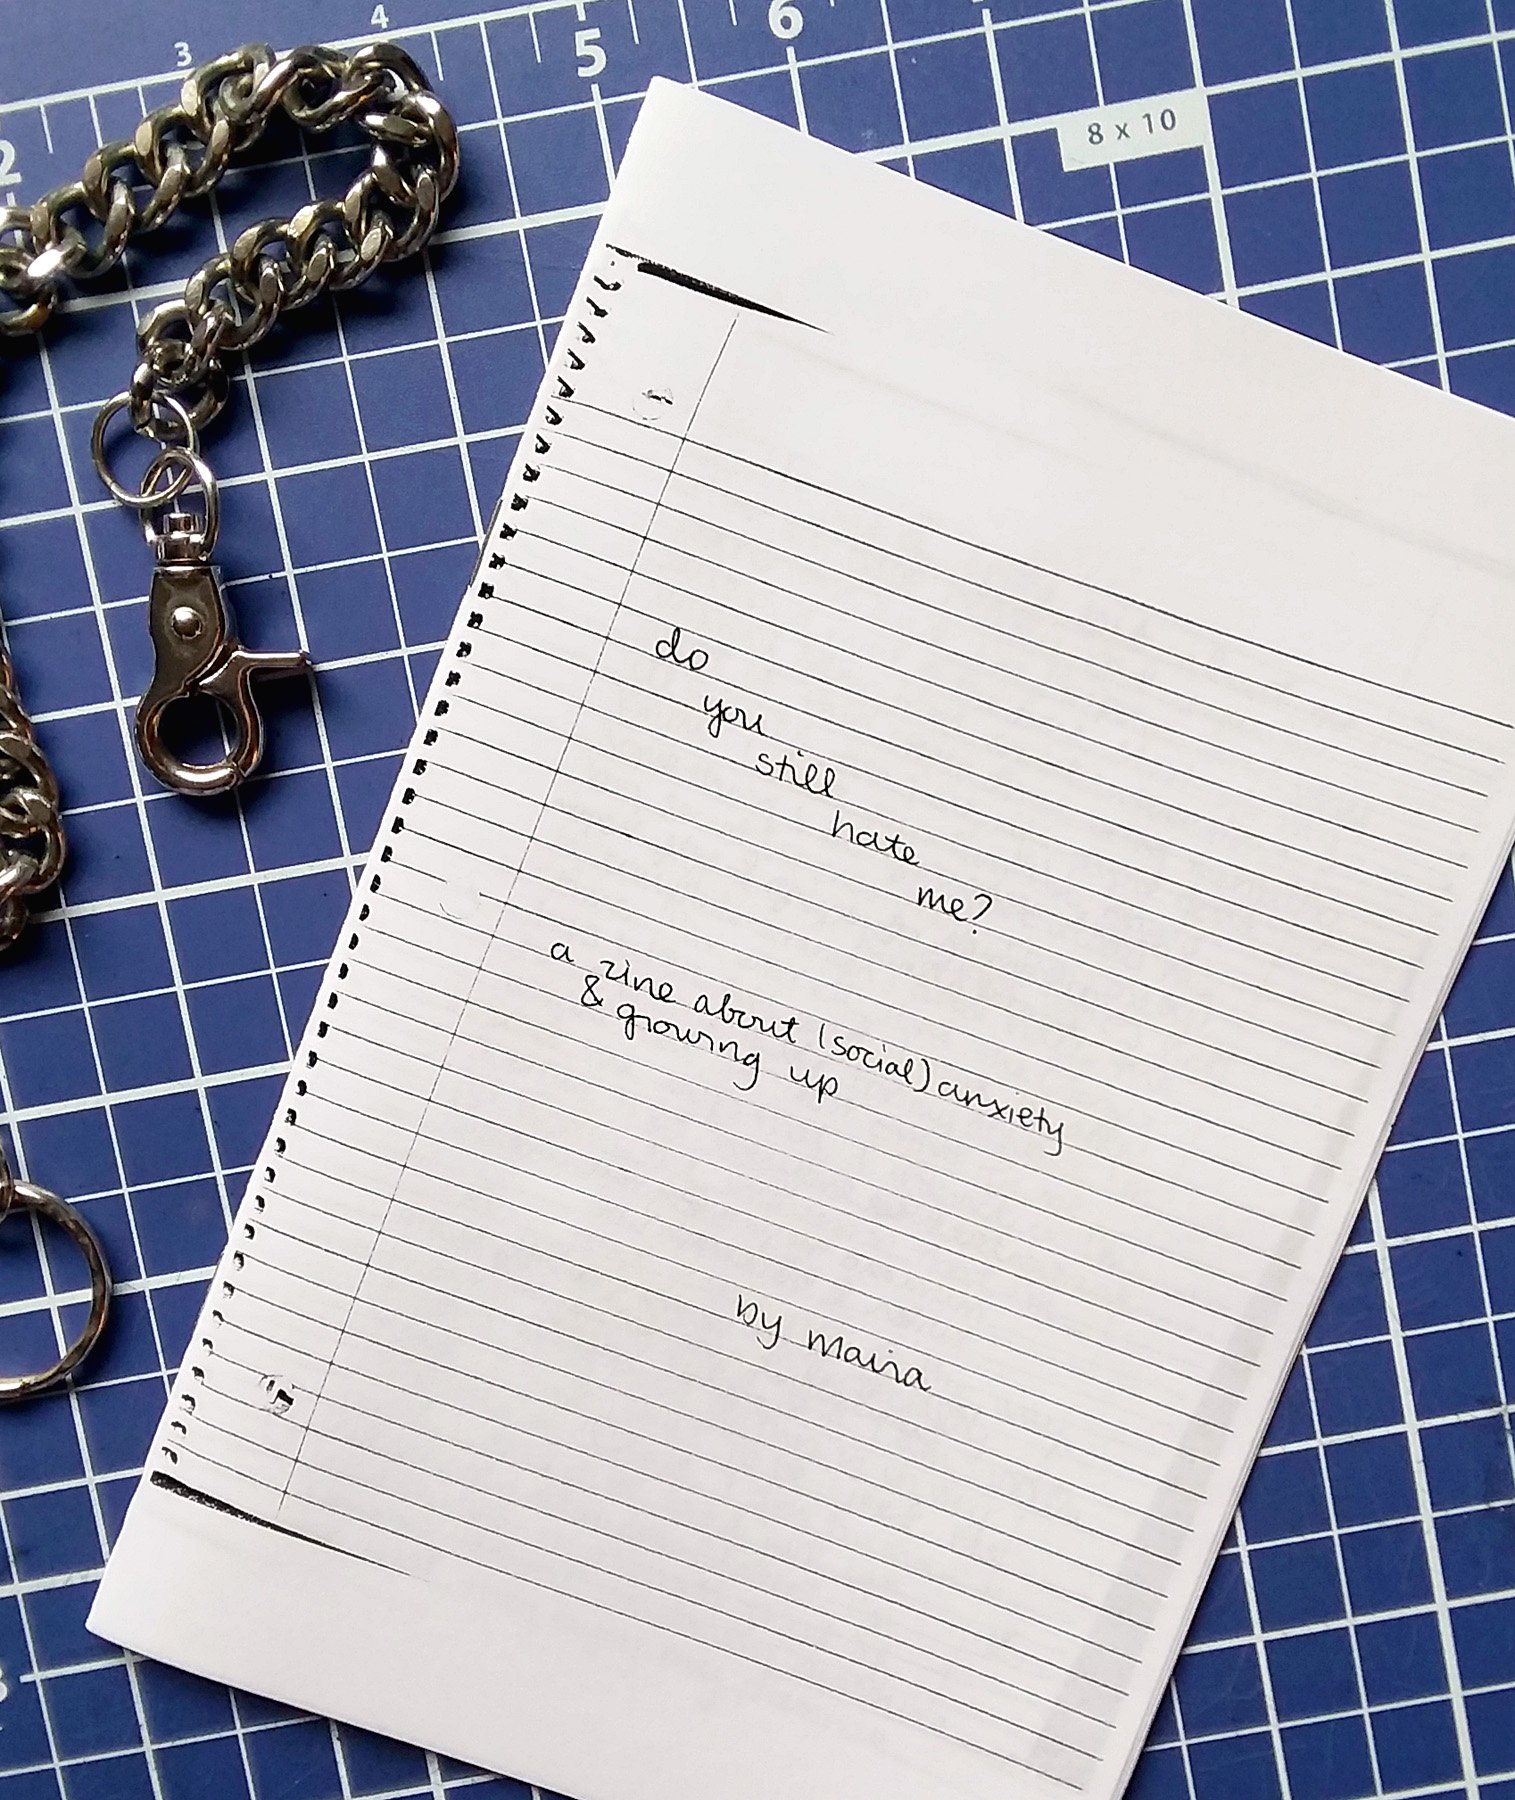 3
4
5
6
2
8 x 10
do
you
still
hate
me?
a zine about (social) anxiety
& growing up
by Maira